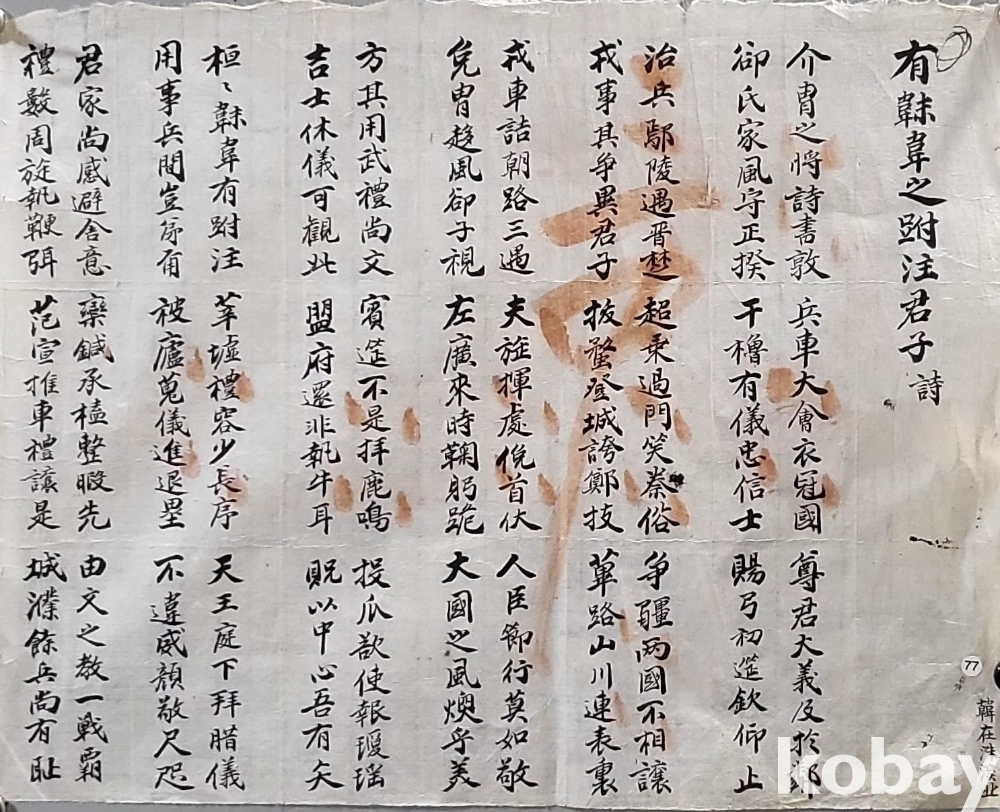 有韎韋之跗注君子 詩
介冑之將詩書敦 兵車大會衣冠國 尊君大義及於
郤氏家風守正揆 干櫓有儀忠信士 賜弓初筵欽仰止
治兵鄢陵遇晋楚 超乘過門笑秦俗 爭疆兩國不相讓
戎事其爭異君子 拔蝥登城誇鄭技 蓽路山川連表裏
戎車詰朝路三遇 夫旌揮處俛首伏 人臣節行莫如敬
免冑趍風卻子視 左廣來時鞠躬跪 大國之風煥乎美
方其用武禮尚文 賓筵不是拜鹿鳴 投瓜欲使報瓊瑤
吉士休儀可觀此 盟府還非執牛耳 貺以中心吾有矢
桓〻韎韋有跗注 莘墟禮容少長序 天王庭下拜腊儀
用事兵間豈 有 被廬蒐儀進退壘 不違威顔敬尺咫
君家尚感避舍意 欒鍼承榼整暇先 由文之教一戰霸
禮數周旋執鞭弭 范宣推車禮讓是 城濮餘兵尚有恥
77
韓在
kobay